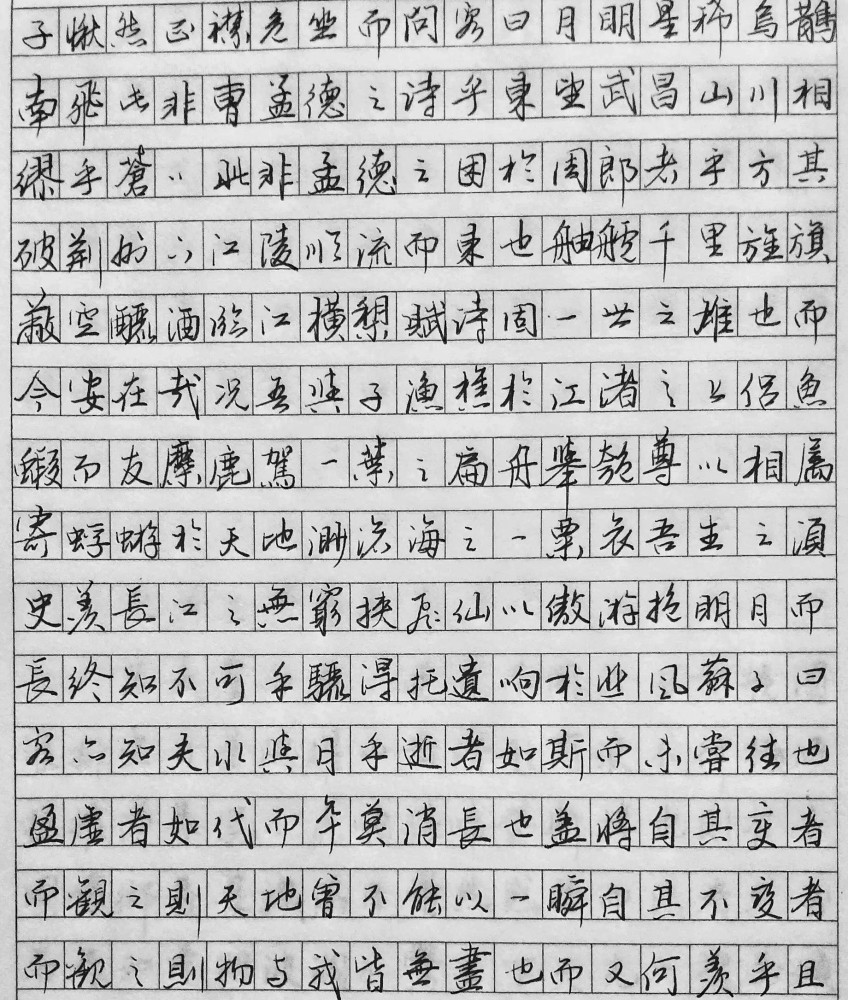 子愀然正襟危坐而问客曰月明星稀烏鵲
南飛此非曹孟德之诗乎東望武昌山川相
繆乎蒼〻此非孟德之困於周郎者乎方其
破荆州下江陵顺流而東也舳艫千里旌旗
蔽空釃酒临江横槊赋诗固一世之雄也而
今安在哉况吾與子漁樵於江渚之上侣魚
蝦而友麋鹿駕一葉之扁舟舉匏尊以相属
寄蜉蝣於天地渺滄海之一粟哀吾生之須
臾羡長江之無窮挟飞仙以傲游抱明月而
長终知不可乎驟得托遺响於悲风蘇子曰
客亦知夫水與月乎逝者如斯而未嘗往也
盈虚者如代而卒莫消長也盖將自其变者
而觀之則天地曾不能以一瞬自其不变者
而觀之則物与我皆無盡也而又何羡乎且